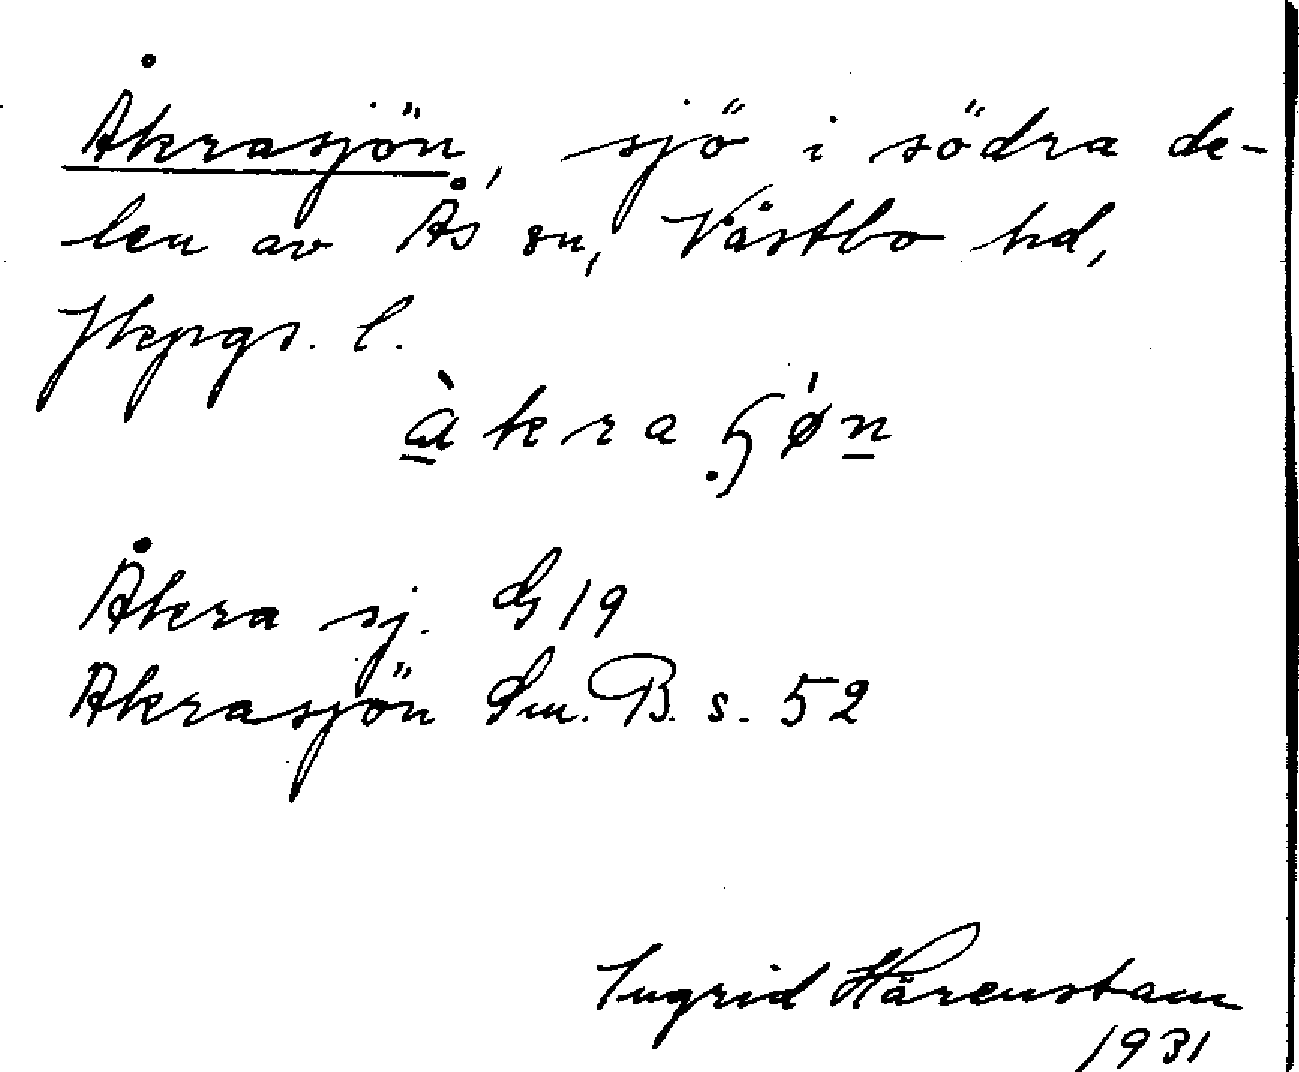 Åkrasjön, sjö i södra de-
len av Ås sn, Västbo hd,
Jkpgs. l.
Åkra sj. G 19
Åkrasjön Sm. B. s. 52
Ingrid Härenstam
1931